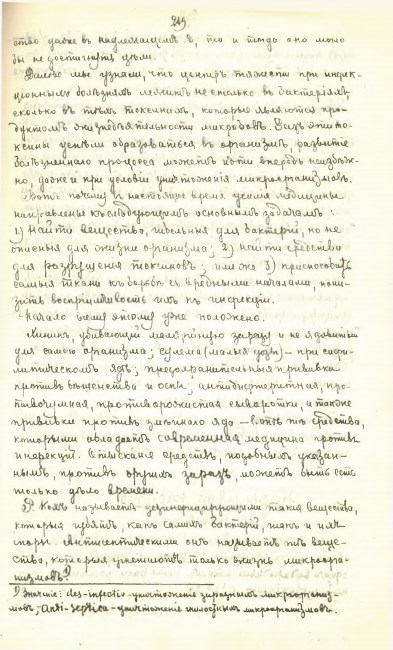 249.
ство даже въ надлежащемъ , то и тогда оно могло
бы не достигнуть цѣли.
Далѣе мы узнали, что центръ тяжести при инфек-
ціонныхъ болѣзняхъ лежитъ не столько въ бактеріяхъ,
сколько въ тѣхъ токсинахъ, которые являются про-
дуктомъ жизнедѣятельности микробовъ. Разъ эти то-
ксины успѣли образоваться въ организмѣ, развитіе
болѣзненнаго процесса можетъ идти впередъ неизбѣж-
но, даже и при условіи уничтоженія микроорганизмовъ.
Вотъ почему въ настоящее время усилія медицины
направлены къ слѣдующимъ основнымъ задачамъ:
1) найти вещество, гибельныя для бактерій, но не
опасныя для жизни организма; 2) найти средства
для разрушенія токсиновъ; или же 3) приспособить
самыя ткани къ борьбѣ съ вредными началами, пони-
зить воспріимчивость ихъ къ инфекціи.
Начало всему этому уже положено.
Хининъ, убивающій малярійную заразу и не ядовитый
для самого организма; сулема (малыя дозы) — при сифи-
литическомъ ядѣ; предохранительныя прививки
противъ бѣшенства и оспы; антидифтерійная, про-
тивочумная, противорожистая сыворотки, а также
прививки противъ змѣинаго яда — вотъ тѣ средства,
которыми обладаетъ современная медицина противъ
инфекцій. Отысканіе средствъ, подобныхъ указан-
нымъ, противъ другихъ заразъ, можетъ быть есть
только дѣло времени.
Р. Кохъ называетъ дезинфицирующими такія вещества,
которыя убиваютъ, какъ самихъ бактерій, такъ и ихъ
споры. Антисептическими онъ называетъ тѣ веще-
ства, которыя угнетаютъ только жизнь микроорга-
низмовъ.¹⁾
¹⁾ Значитъ: des-infectio - уничтоженіе заразныхъ микроорганиз-
мовъ, anti-septica - уничтоженіе гнилостныхъ микроорганизмовъ.